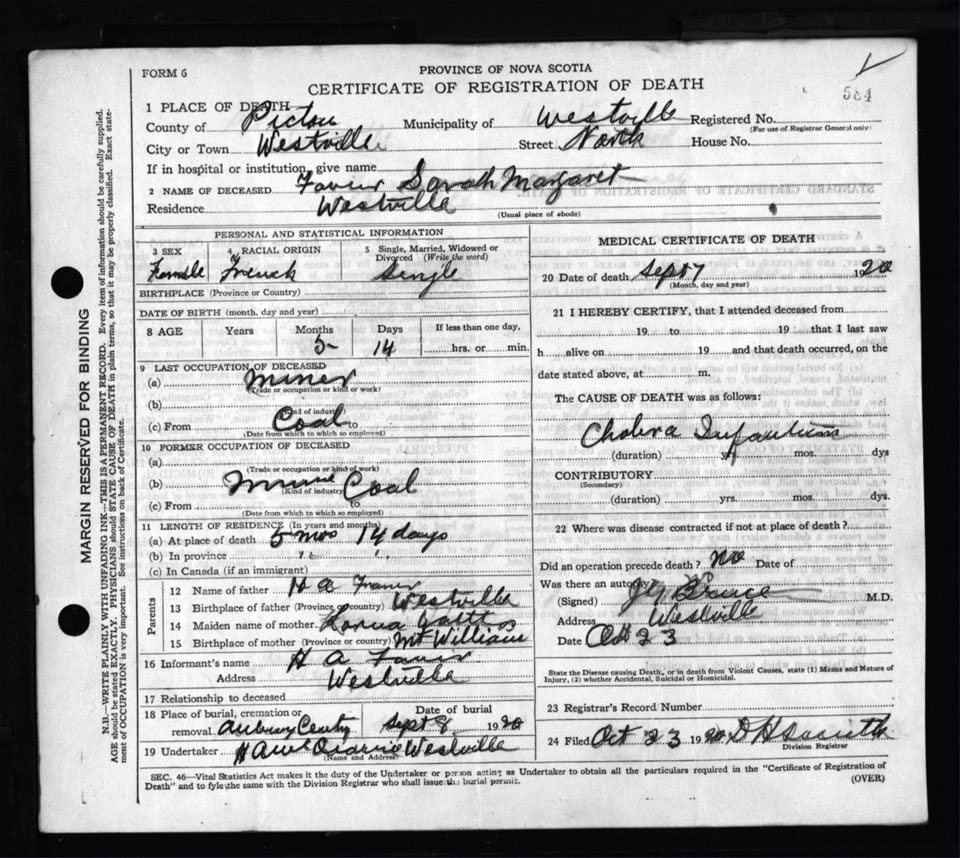 PROVINCE OF NOVA SCOTIA
FORM 6
CERTIFICATE OF REGISTRATION OF DEATH
584
1 PLACE OF DEATH
County of Pictou Municipality of Westville Registered No.
(For use of Registrar General only)
City or Town Westville Street North House No.
If in hospital or institution, give name
2 NAME OF DECEASED Sarah Margaret
Residence Westville
(Usual place of abode)
PERSONAL AND STATISTICAL INFORMATION
3 SEX 4 RACIAL ORIGIN 5 Single, Married, Widowed or Divorced (Write the word)
Female French Single
BIRTHPLACE (Province or Country)
DATE OF BIRTH (month, day and year)
8 AGE Years Months Days If less than one day,
5 14 hrs. or min.
9 LAST OCCUPATION OF DECEASED
(a) Miner
(Trade or occupation or kind of work)
(b)
(Kind of industry)
(c) From Coal to
(Date from which to which so employed)
10 FORMER OCCUPATION OF DECEASED
(a)
(Trade or occupation or kind of work)
(b) Coal
(Kind of industry)
(c) From
(Date from which to which so employed)
11 LENGTH OF RESIDENCE (In years and months)
(a) At place of death 5 mos 14 days
(b) In province " "
(c) In Canada (if an immigrant)
Parents
12 Name of father H A
13 Birthplace of father (Province or country) Westville
14 Maiden name of mother
15 Birthplace of mother (Province or country) Mt William
16 Informant's name H A
Address Westville
17 Relationship to deceased
18 Place of burial, cremation or removal Date of burial
Sept 8 1920
19 Undertaker Westville
(Name and Address)
MEDICAL CERTIFICATE OF DEATH
20 Date of death Sept 7 1920
(Month, day and year)
21 I HEREBY CERTIFY, that I attended deceased from
19 to 19 that I last saw
h alive on 19 and that death occurred, on the
date stated above, at m.
The CAUSE OF DEATH was as follows:
Cholera Infantum
(duration) yrs. mos. dys
CONTRIBUTORY
(Secondary)
(duration) yrs. mos. dys.
22 Where was disease contracted if not at place of death?
Did an operation precede death? no Date of
Was there an autopsy
(Signed) M.D.
Address Westville
Date Oct 23
State the Disease causing Death, or in death from Violent Causes, state (1) Means and Nature of
Injury, (2) whether Accidental, Suicidal or Homicidal.
23 Registrar's Record Number
24 Filed Oct 23 1920
Division Registrar
SEC. 46—Vital Statistics Act makes it the duty of the Undertaker or person acting as Undertaker to obtain all the particulars required in the "Certificate of Registration of
Death" and to fyle the same with the Division Registrar who shall issue the burial permit. (OVER)
MARGIN RESERVED FOR BINDING
N.B.—WRITE PLAINLY WITH UNFADING INK—THIS IS A PERMANENT RECORD. Every item of information should be carefully supplied.
AGE should be stated EXACTLY. PHYSICIANS should STATE CAUSE OF DEATH in plain terms, so that it may be properly classified. Exact state-
ment of OCCUPATION is very important. See instructions on back of Certificate.